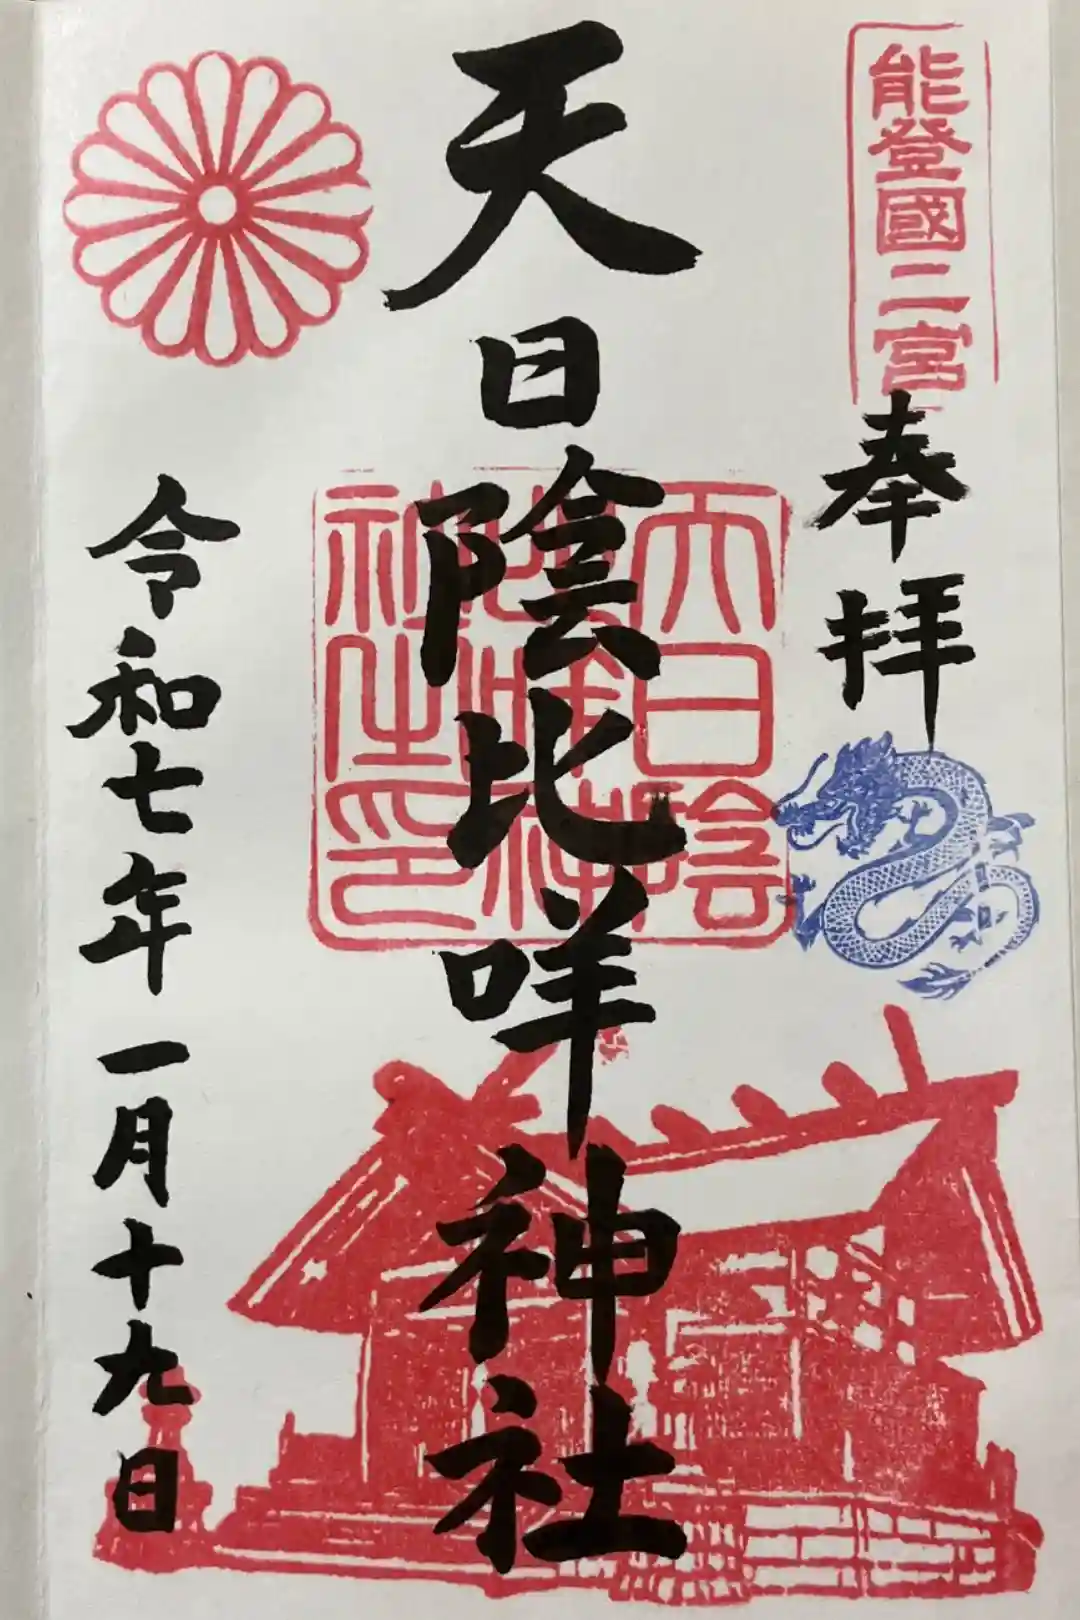 能登國二宮
奉拝
天日陰比咩神社
天日陰比咩神社之印
令和七年一月十九日